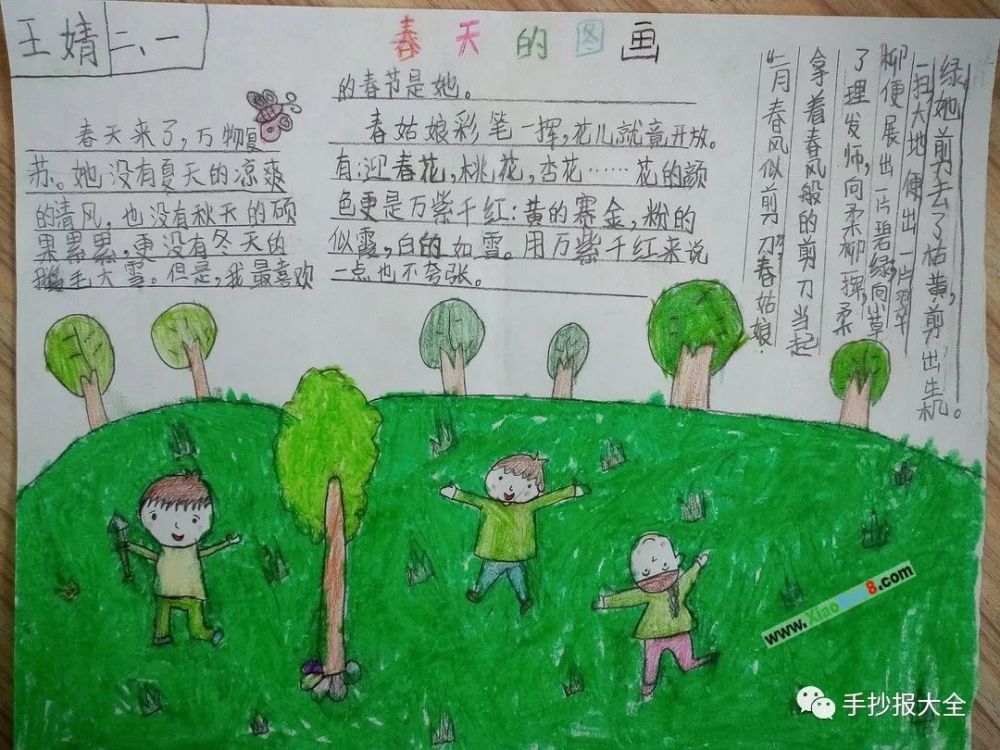 王婧 二、一
春天的图画
春天来了，万物复
苏。她没有夏天的凉爽
的清风，也没有秋天的硕
果累累，更没有冬天的
鹅毛大雪。但是，我最喜欢
的春节是她。
春姑娘彩笔一挥，花儿就竟开放。
有：迎春花，桃花，杏花……花的颜
色更是万紫千红：黄的赛金，粉的
似霞，白的如雪。用万紫千红来说
一点也不夸张。
“二月春风似剪刀”春姑娘
拿着春风般的剪刀当起
了理发师，向柔柳
柳便展出一片碧绿向草
一扫大地便出一片翠
绿她剪去了枯黄，剪出生机。
www.Xiao8.com
手抄报大全